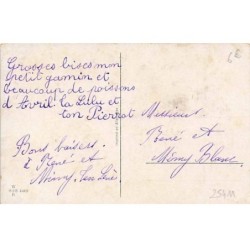 Grosses bises mon
petit gamin et
beaucoup de poissons
d'Avril la Lulu et
ton Pierrot
Bons baisers
à René et
Mimy
Messieurs
René et
Mimy Blanc
6E